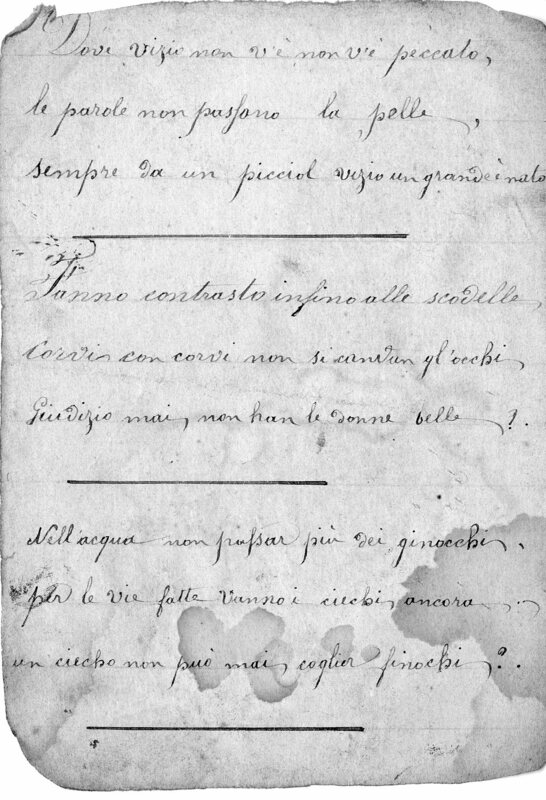 Dove vizio non v'è non v'è peccato,
le parole non passano la pelle,
sempre da un picciol vizio un grande è nato
Fanno contrasto insino alle scodelle,
Corvi con corvi non si cavdan gl'occhi,
Giudizio mai, non han le donne belle?.
Nell'acqua non passar più dei ginocchi,
per le vie fatte vanno i ciechi, ancora
un ciecho non può mai, coglier finochi?.